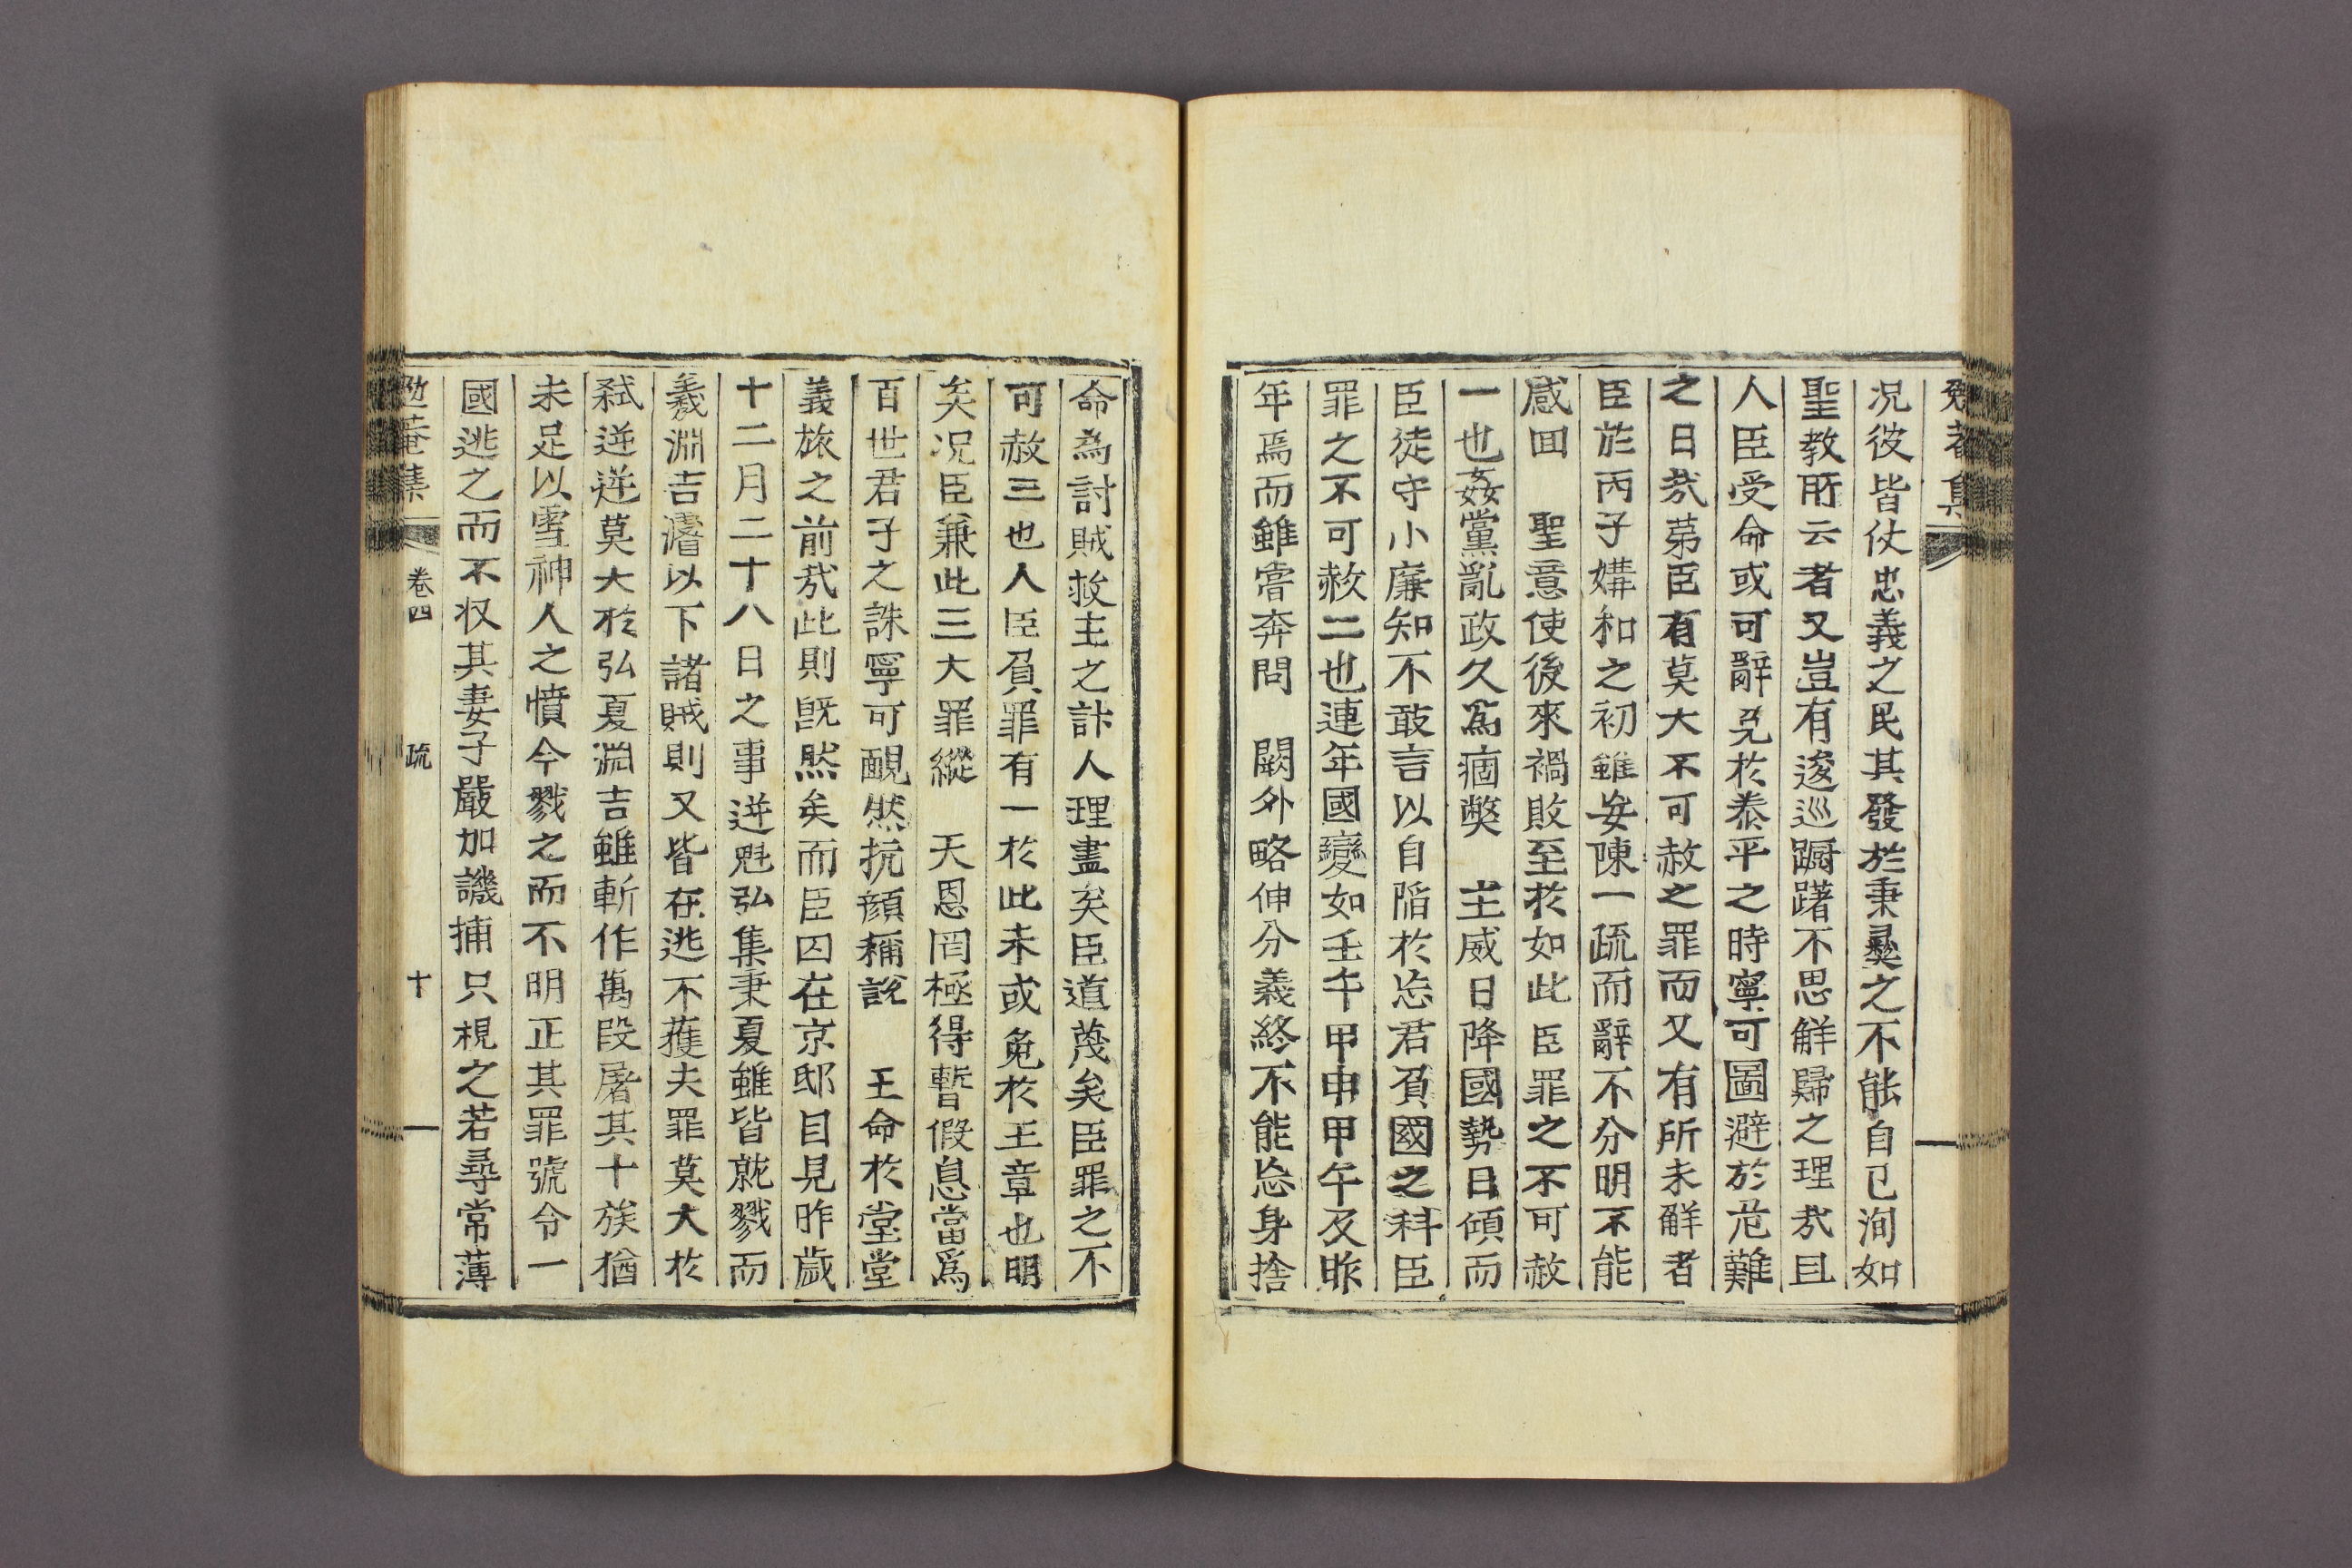 勉菴集
況彼皆仗忠義之民其發於秉彛之不能自已洵如
聖教所云者又豈有逡巡躕躇不思解歸之理㢤且
人臣受命或可辭免於泰平之時寧可圖避於危難
之日㢤苐臣有莫大不可赦之罪而又有所未解者
臣於丙子媾和之初雖妄陳一疏而辭不分明不能
感回　聖意使後來禍敗至於如此臣罪之不可赦
一也姦黨亂政久爲痼弊　主威日降國勢日傾而
臣徒守小廉知不敢言以自陷於忘君負國之科臣
罪之不可赦二也連年國變如壬午甲申甲午及昨
年焉而雖嘗奔問　闕外略伸分義終不能忘身捨
命為討賊救主之計人理盡矣臣道蔑矣臣罪之不
可赦三也人臣負罪有一於此未或免於王章也明
矣况臣兼此三大罪縱　天恩罔極得暫假息當爲
百世君子之誅寧可靦然抗顔稱說　王命於堂堂
義旅之前㢤此則旣然矣而臣囚在京邸目見昨歲
十二月二十八日之事逆魁弘集秉夏雖皆就戮而
羲淵吉濬以下諸賊則又皆在逃不獲夫罪莫大於
弑逆逆莫大於弘夏淵吉雖斬作萬段屠其十族猶
未足以雪神人之憤今戮之而不明正其罪號令一
國逃之而不收其妻子嚴加譏捕只視之若尋常薄
勉菴集　卷四　疏　十